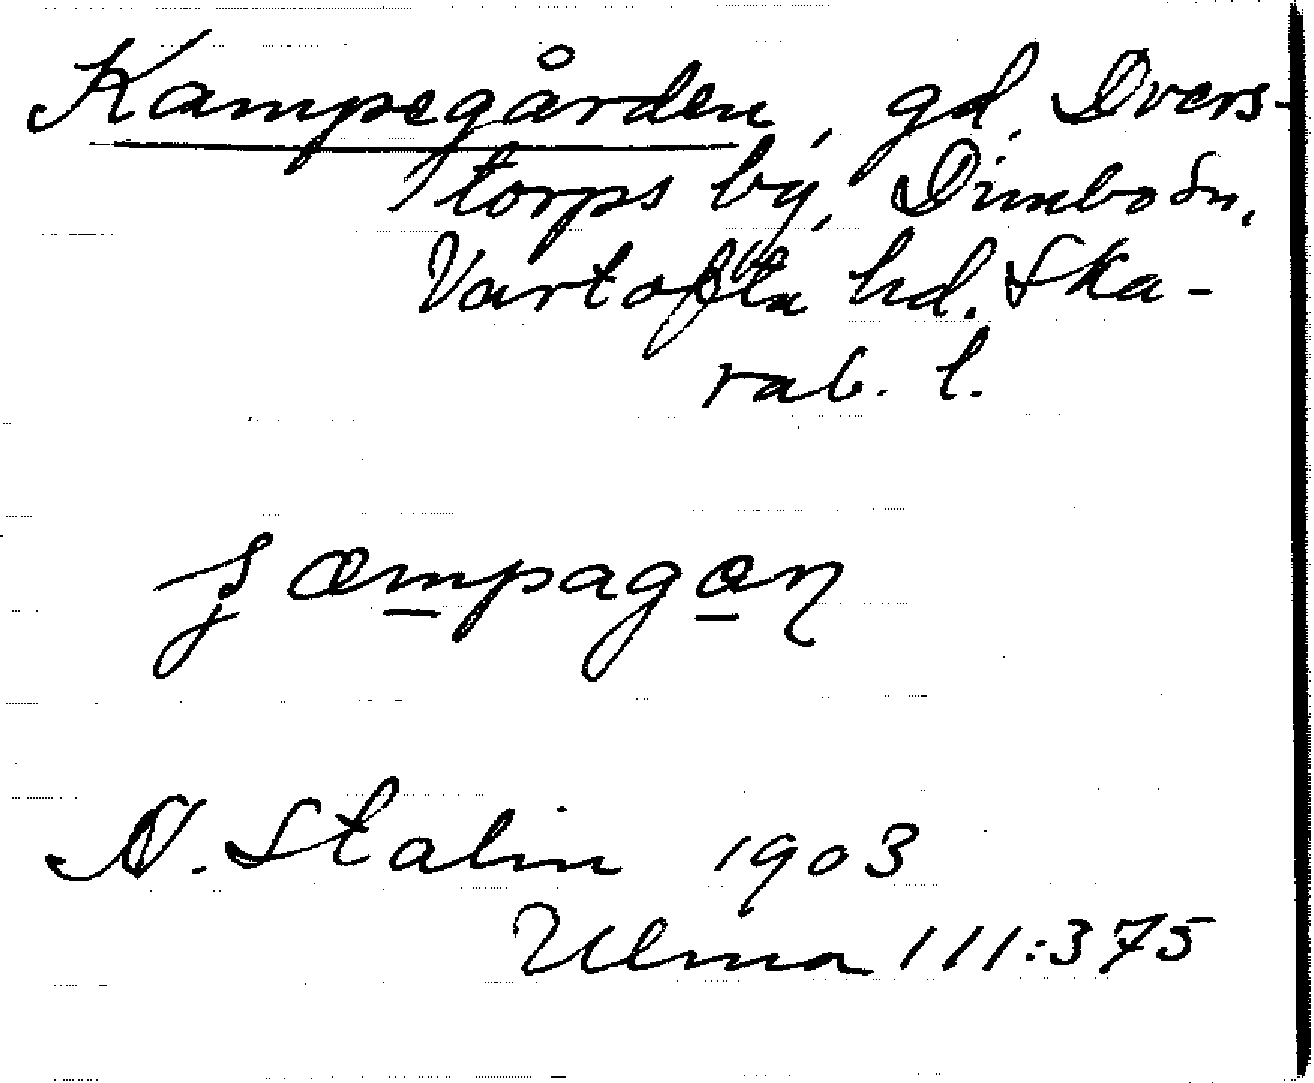 Kampegården, gd, Dvers-
torps by, Dimbo sn,
Vartofta hd. Ska-
rab. l.
A. Stalin 1903
Ulma 111:375